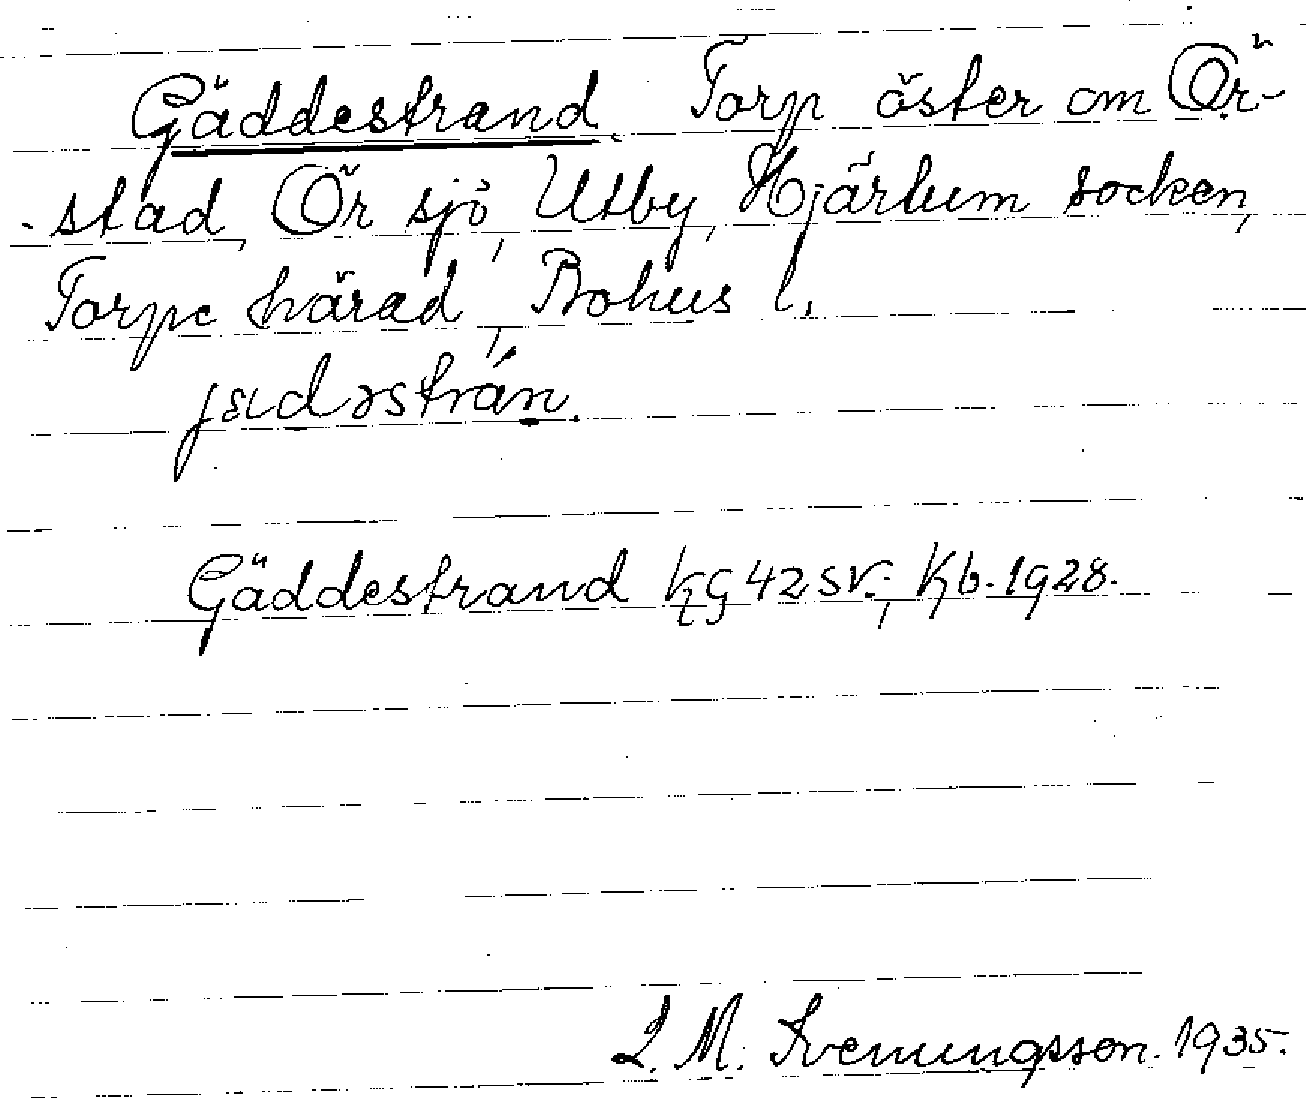 Gäddestrand. Torp öster om Ör-
-stad, Ör sjö, Utby, Hjärtum socken,
Torpe härad, Bohus l.
jædəstrán.
Gäddestrand kg 42 sv.; Kb. 1928.
L. M. Svenungsson. 1935.